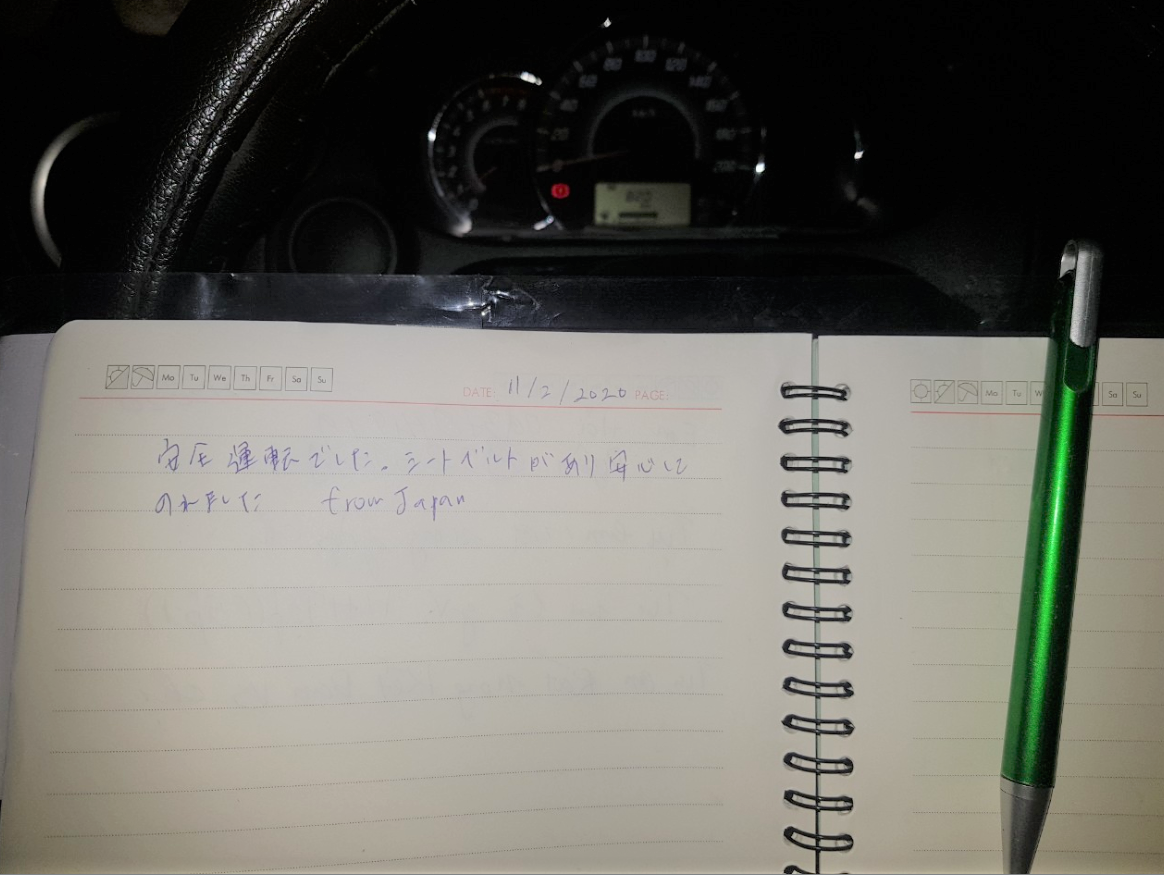 Mo Tu We Th Fr Sa Su
DATE: 11/2/2020 PAGE:
安全運転でした。シートベルトがあり安心して
のれました from Japan
Mo Tu W Sa Su
20
40
60
80
100
120
140
160
180
200